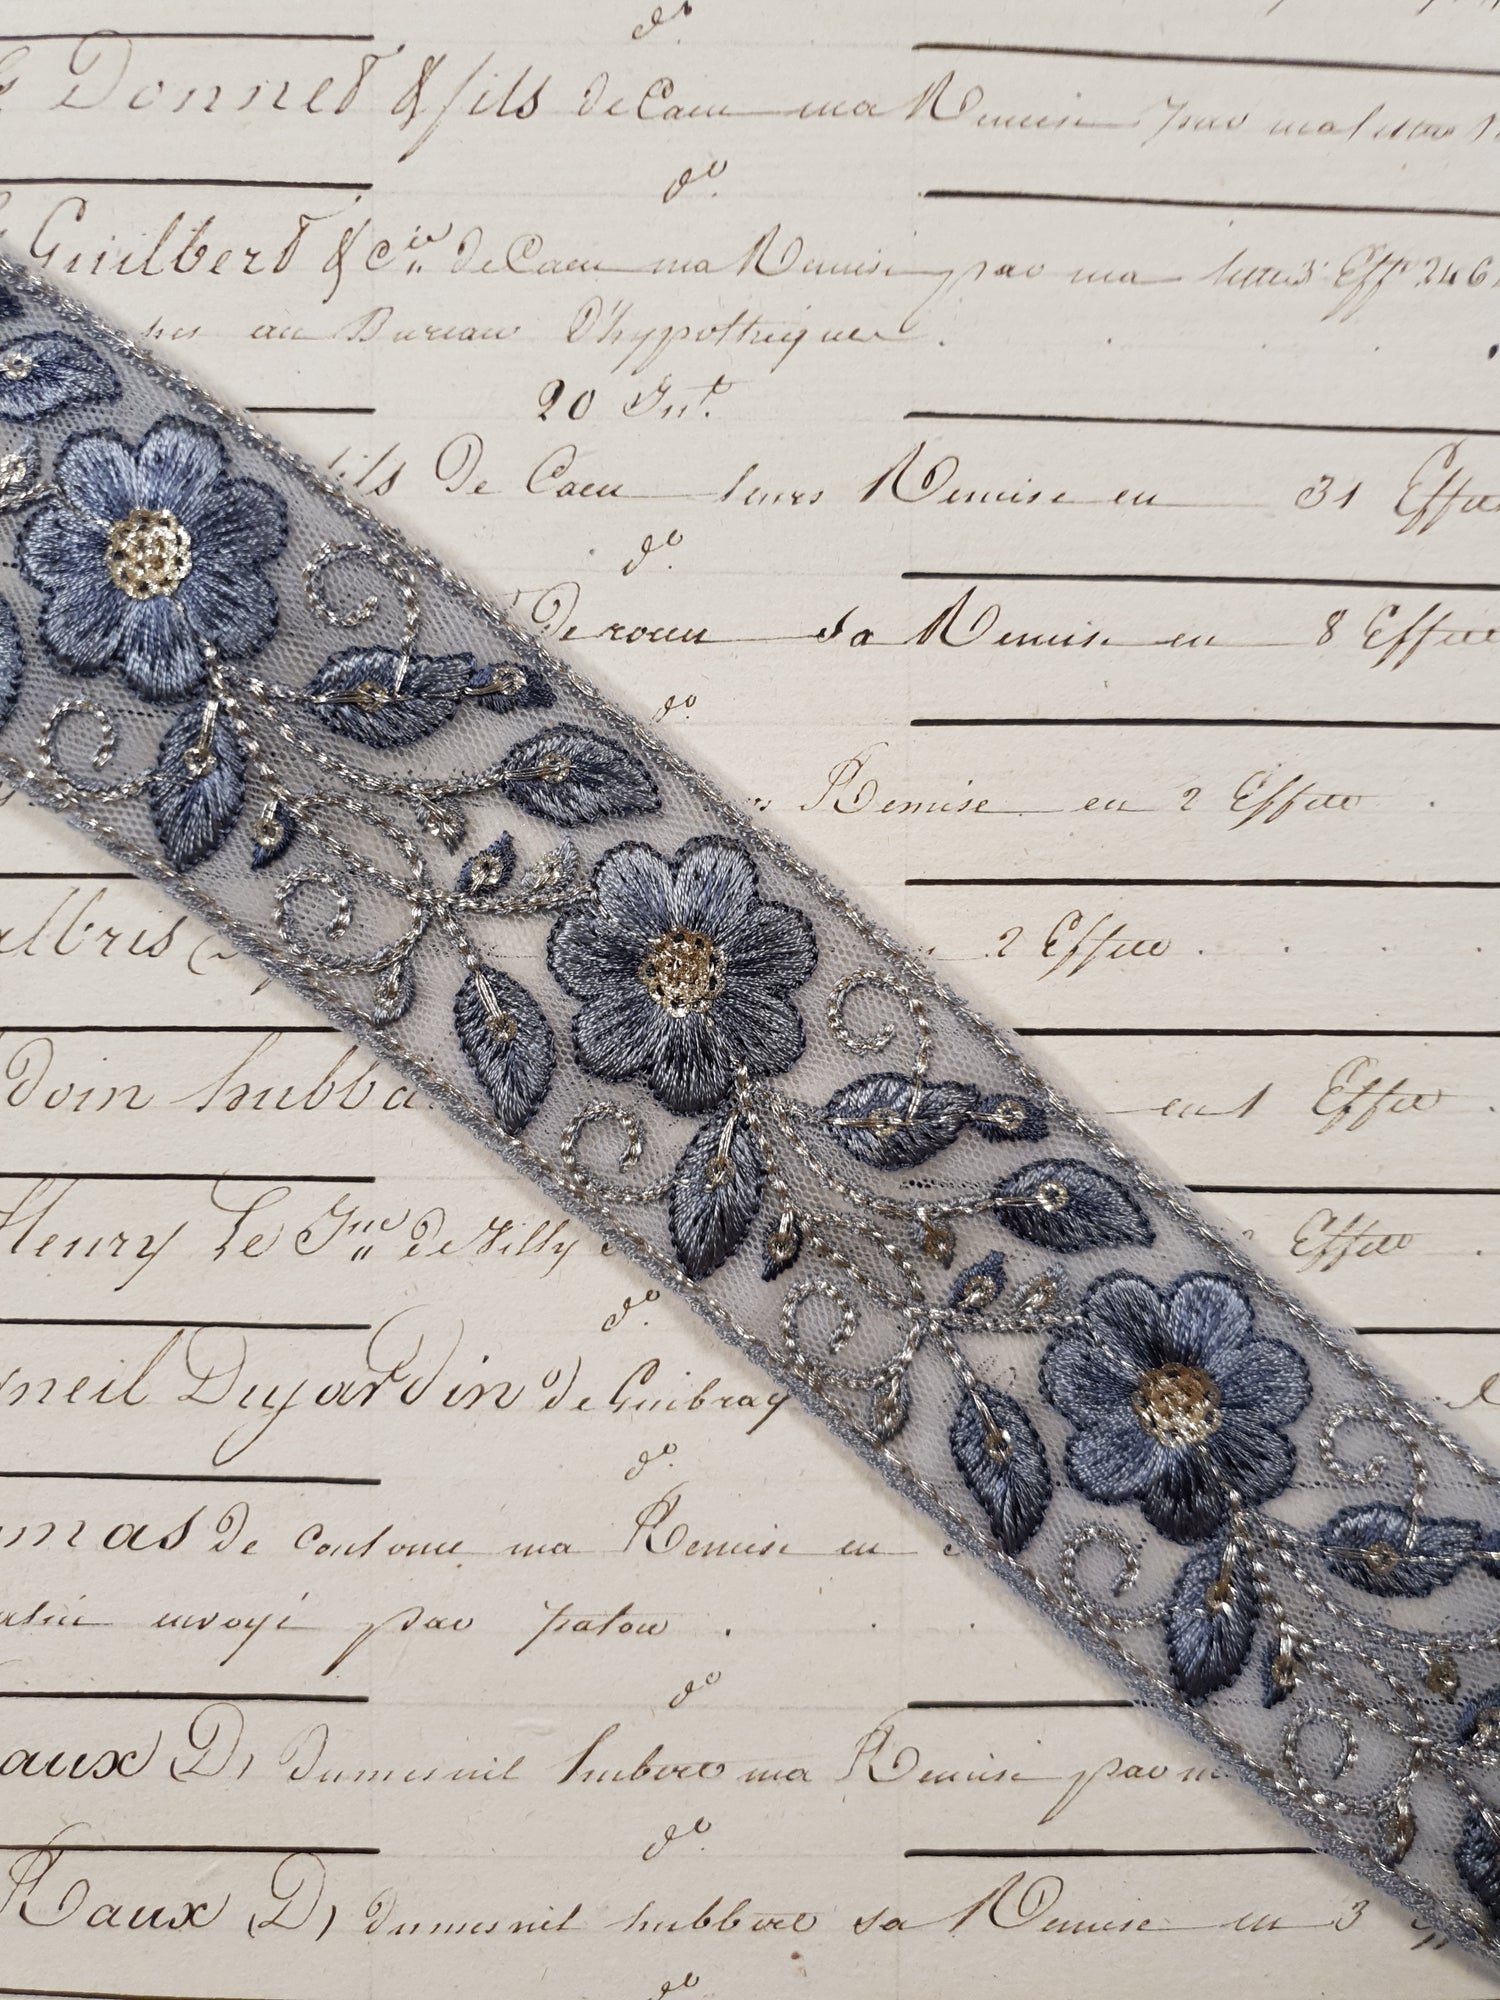 d°.
Donnet & fils de Caen ma Remise par ma lettre
d°.
Guilbert & Cie de Caen ma Remise par ma lettre 3 Eff. 246
au Bureau D'hypothèques.
20 Jnt.
fils De Caen leurs Remise en 31 Effets
d°.
De rouen sa Remise en 8 Effets
d°.
Remise en 2 Effets .
2 Effets .
doin hubba en 1 Effets .
Henry Le Jne de Tilly Effets .
d°.
neil Dujardin de Guibray
d°.
mas de ma Remise en
envoyé par
d°.
aux D, dumesnil hubert ma Remise par
d°.
Raux D, dumesnil hubbert sa Remise en 3
d°.